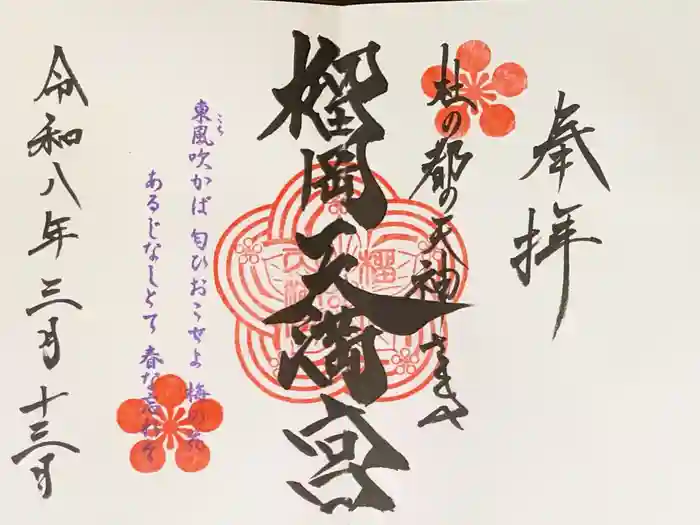 奉拝
杜の都の天神さまや
榴岡天満宮
東風吹かば 匂ひおこせよ 梅の花
こち
あるじなしとて 春な忘れそ
令和八年三月十三日